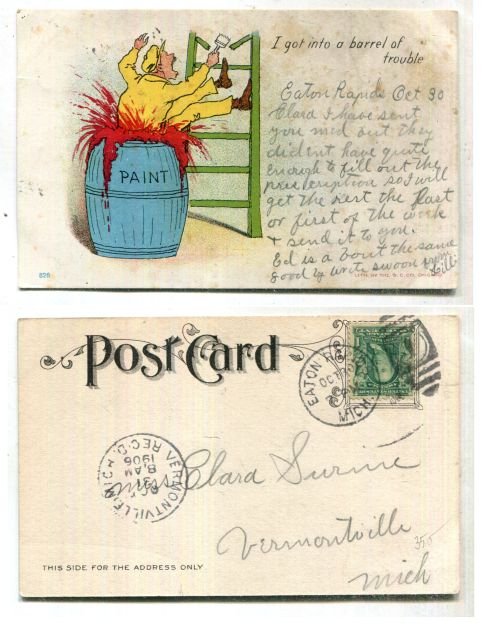 I got into a barrel of
trouble
PAINT
Eaton Rapids Oct 30
Clara I have sent
you med out they
did ent have quite
enough to fill out the
so I will
get the rest the last
or first of the week
& send it to you.
Ed is a bout the same
good by write swoon from
Lill
828
LITH. BY THE S. C. CO. CHICAGO
Post Card
EATON RAPIDS
OCT 30
MICH.
VERMONTVILLE MICH
REC'D.
OCT
31
8 AM
1906
Miss Clara Surine
Vermontville
350
Mich
THIS SIDE FOR THE ADDRESS ONLY